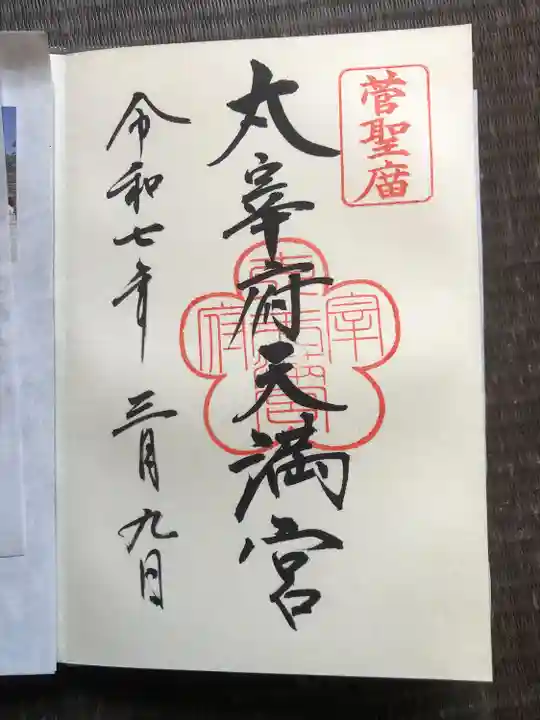 菅聖庿
太宰府天満宮
令和七年 三月九日